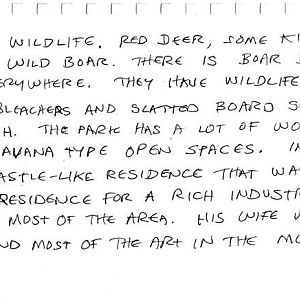 WILDLIFE, RED DEER, SOME KI
WILD BOAR. THERE IS BOAR
ERYWHERE. THEY HAVE WILDLIFE
BLEACHERS AND SLATTED BOARD S
H. THE PARK HAS A LOT OF WO
AVANA TYPE OPEN SPACES. IN
ASTLE-LIKE RESIDENCE THAT WA
RESIDENCE FOR A RICH INDUSTR
MOST OF THE AREA. HIS WIFE W
ND MOST OF THE ART IN THE MU